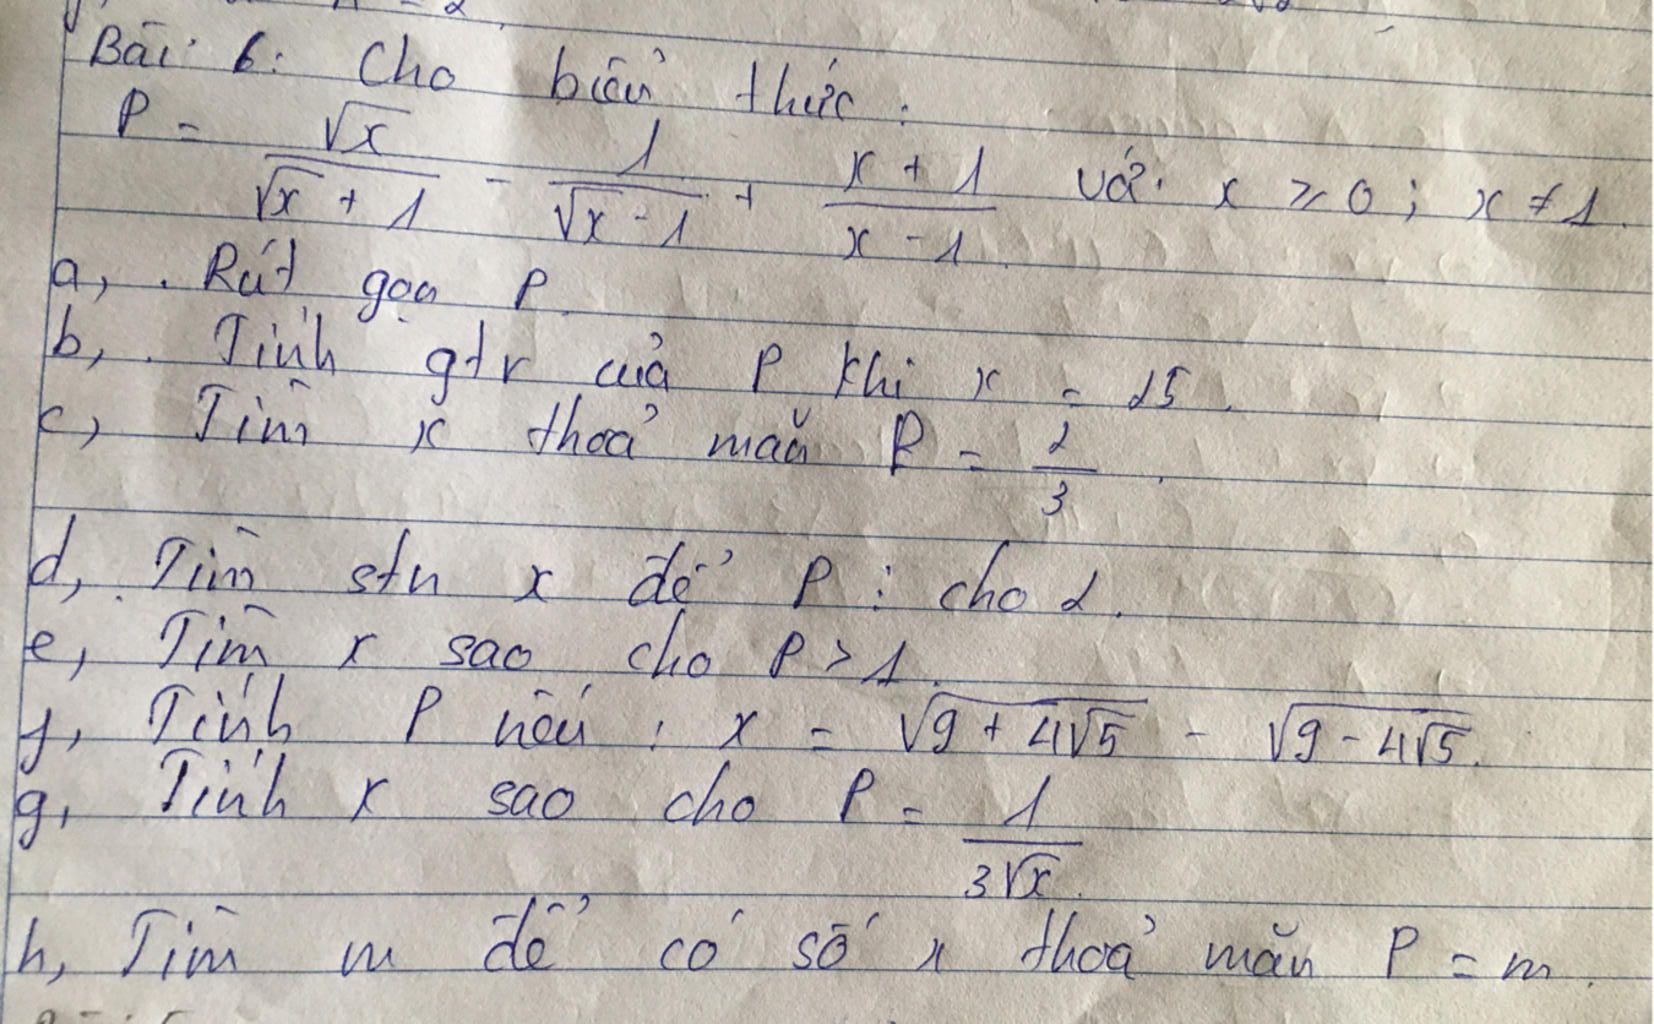 Bài 6: Cho biểu thức:
P = √x/(√x + 1) - 1/(√x - 1) + (x + 1)/(x - 1) với x ≥ 0; x ≠ 1.
a, Rút gọn P.
b, Tính gtr của P khi x = 25.
c, Tìm x thoả mãn P = 2/3.
d, Tìm stn x để P ⋮ cho 2.
e, Tìm x sao cho P > 1.
f, Tính P nếu: x = √(9 + 4√5) - √(9 - 4√5).
g, Tính x sao cho P = 1/(3√x).
h, Tìm m để có số x thoả mãn P = m.